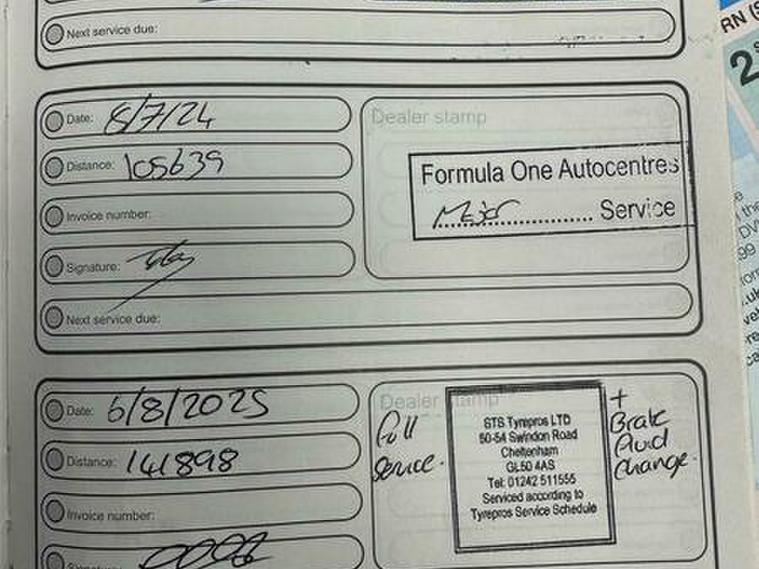 Next service due:
Date: 8/7/24
Distance: 105639
Invoice number:
Signature:
Next service due:
Dealer stamp
Formula One Autocentres
Major .............. Service
Date: 6/8/2025
Distance: 141898
Invoice number:
Dealer stamp
Full
Service.
STS Tyrepros LTD
50-54 Swindon Road
Cheltenham
GL50 4AS
Tel: 01242 511555
Serviced according to
Tyrepros Service Schedule
+
Brake
Fluid
Change.
RN (
2